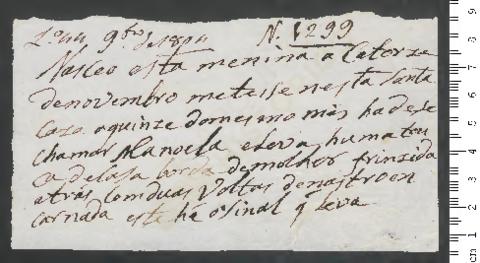 9bro de 1804 N. 1299
Nasceo esta menina a Catorze
de novembro meteisse nesta Santa
Caza aquinze domesmo mes hadese
chamar Manoela eleva huma tou
ca de lasa borda demolher frinzida
atras Comduas Voltas denastro en
carnada este he osinal q leva